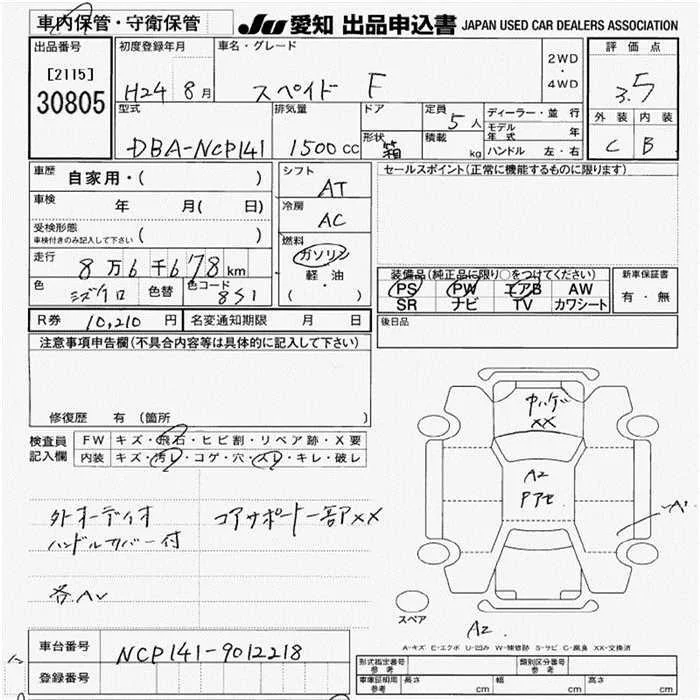 車内保管・守衛保管
JU 愛知 出品申込書 JAPAN USED CAR DEALERS ASSOCIATION
出品番号
[2115]
30805
初度登録年月
H24 8月
車名・グレード
スペイド F
2WD
・
4WD
評価点
3.5
外装 内装
C B
型式
DBA-NCP141
排気量
1500cc
ドア
形状
箱
定員
5人
積載
kg
ディーラー・並行
モデル年式 年
ハンドル 左・右
車歴
自家用・( )
車検
年 月( 日)
受検形態
車検付きのみ記入して下さい ( )
走行
8万6千678km
色
ミズクロ
色替
色コード
8S1
シフト
AT
冷房
AC
燃料
ガソリン
軽・油
( ・ )
セールスポイント(正常に機能するものに限ります)
装備品(純正品に限り○をつけてください)
PS PW エアB AW
SR ナビ TV カワシート
新車保証書
有・無
R券 10,210円
名変通知期限 月 日
後日品
注意事項申告欄(不具合内容等は具体的に記入して下さい)
修復歴 有(箇所 )
検査員
記入欄
FW キズ・飛石・ヒビ割・リペア跡・X要
内装 キズ・汚レ・コゲ・穴・スレ・キレ・破レ
外オーディオ
ハンドルカバー付
コアサポート一部アXX
各AV
XX
A2
Pアセ
A1
スペア
A2
A-キズ E-エクボ U-凹み W-補修跡 S-サビ C-腐食 XX-交換済
車台番号
NCP141-9012218
登録番号
型式指定番号
参考
類別区分番号
参考
車庫証明用
参考
長さ cm
幅 cm
高さ cm